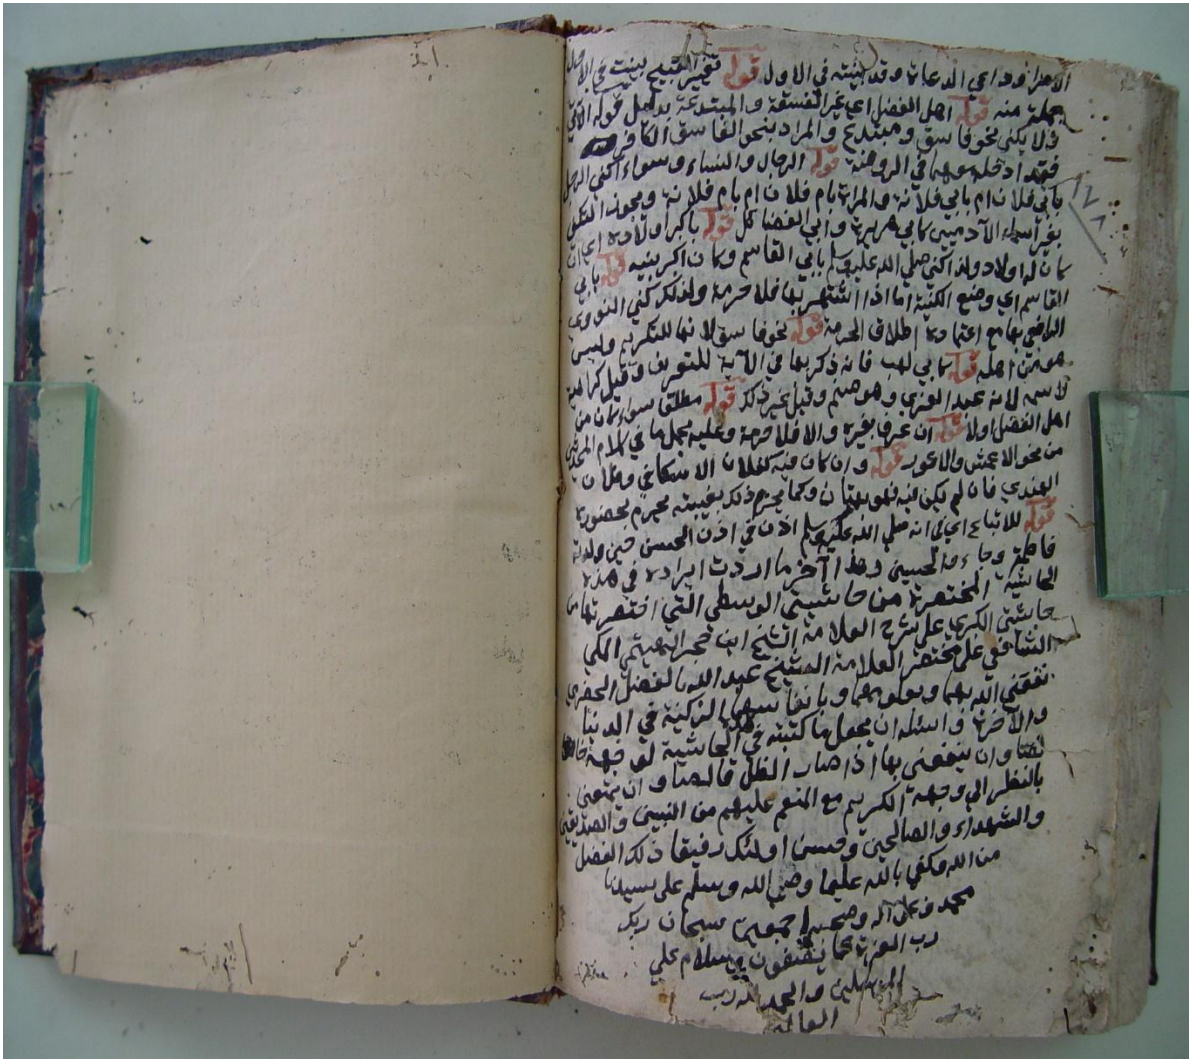 الاحزاب وداعي الدعاة وقد بينته في الاولى قوله تغيير القبيح بينت في
جملة منه قوله اهل الفضل اي غير الفسقة والمبتدعة بدليل قوله الاتي
فلا يكنى نحو فاسق ومبتدع والمراد بنحو الفاسق الكافر
فقد ادخله معهما في الروضة قوله الرجال والنساء وسواء اكني الرجل
بابي فلان ام بابي فلانة والمراة بام فلان ام بام فلانة ويجوز التكني
بغير اسماء الآدميين كابي هريرة وابي الفضائل قوله باكبر اولاده اي ان
كان له اولاد ولذا كني صلى الله عليه وسلم بابي القاسم وكان اكبر بنيه قوله بابي
القاسم اي وضع الكنية اما اذا اشتهر بها فلا حرمة ولذلك كني النووي
الرافعي بها مع اعتماده اطلاق الحرمة قوله نحو فاسق لانها للتكريم وليس
هو من اهله قوله كابي لهب فانه ذكر بها في الآية للتعريف وقيل كراهة
لاسمه لانه عبد العزى وهو صنم وقيل غير ذلك قوله مطلقا سواء كان من
اهل الفضل اولا قوله ان عرف بغيره والا فلا حرمة وعليه يحمل ما في كلام المحدثين
من نحو الاعمش والاعور قوله وان كان فيه كفلان الاسكافي وفلان
الهندي فان لم يكن فيه فهو بهتان وكما يحرم ذلك بغيبته يحرم بحضوره
قوله للاتباع اي انه صلى الله عليه وسلم اذن في اذن الحسن حين ولدته
فاطمة وجاء والحسين وهذا آخر ما اردت ايراده في هذه
الحاشية المختصرة من حاشيتي الوسطى التي اختصرتها من
حاشيتي الكبرى على شرح العلامة الشيخ ابن حجر الهيتمي المكي
الشافعي على مختصر العلامة الشيخ عبد الله بالفضل الحضرمي
نفعني الله بهما وبعلومهما وبانفاسهما الزكية في الدنيا
والآخرة واسئله ان يجعل ما كتبته في الحاشية لوجهه
وان ينفعني بها اذا صار الظل قالصا وان يمتعني
بالنظر الى وجهه الكريم مع المنعم عليهم من النبيين والصديقين
والشهداء والصالحين وحسن اولئك رفيقا ذلك الفضل
من الله وكفى بالله عليما وصلى الله وسلم على سيدنا
محمد وعلى آله وصحبه اجمعين سبحان ربك
رب العزة عما يصفون وسلام على
المرسلين والحمد لله رب
العالمين
١٧٨